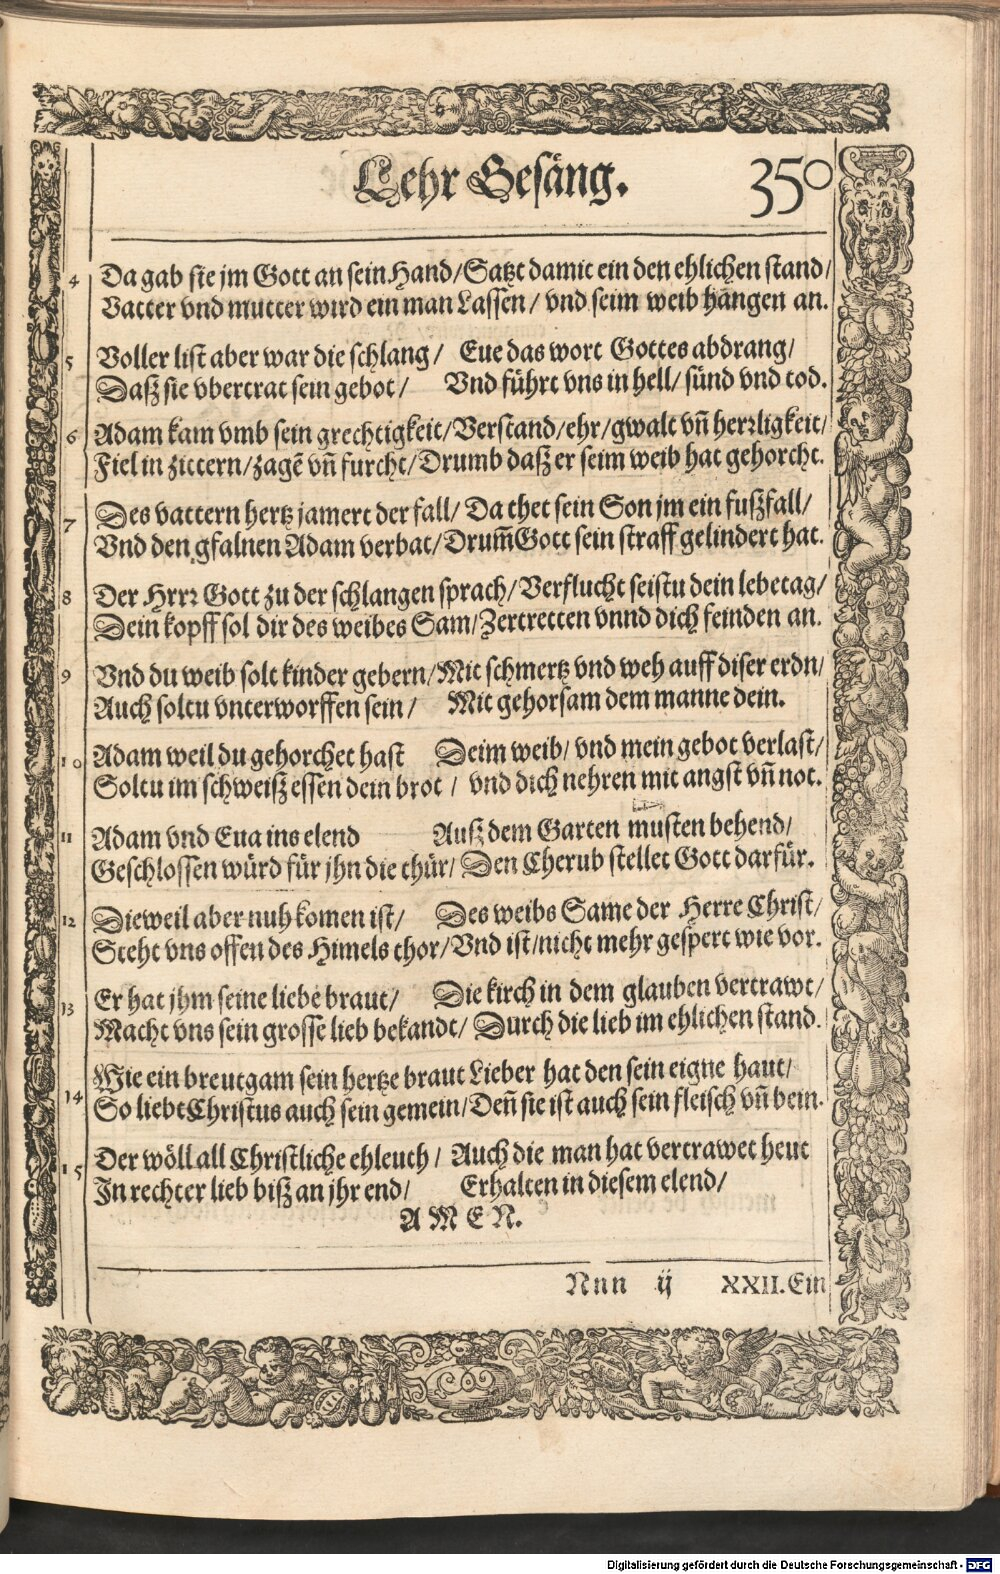 Lehr Gesäng. 350
4 Da gab sie jm Gott an sein Hand/ Satzt damit ein den ehlichen stand/
Vatter vnd mutter wird ein man Lassen/ vnd seim weib hangen an.
5 Voller list aber war die schlang/ Eue das wort Gottes abdrang/
Daß sie vbertrat sein gebot/ Vnd führt vns in hell/ sünd vnd tod.
6 Adam kam vmb sein grechtigkeit/ Verstand/ ehr/ gwalt vñ herrligkeit/
Fiel in zittern/ zagẽ vñ furcht/ Drumb daß er seim weib hat gehorcht.
7 Des vattern hertz jamert der fall/ Da thet sein Son jm ein fußfall/
Vnd den gfalnen Adam verbat/ Drum̃ Gott sein straff gelindert hat.
8 Der Hrrr Gott zu der schlangen sprach/ Verflucht seistu dein lebetag/
Dein kopff sol dir des weibes Sam/ Zertretten vnnd dich feinden an.
9 Vnd du weib solt kinder gebern/ Mit schmertz vnd weh auff diser erdn/
Auch soltu vnterworffen sein/ Mit gehorsam dem manne dein.
10 Adam weil du gehorchet hast Deim weib/ vnd mein gebot verlast/
Soltu im schweiß essen dein brot/ vnd dich nehren mit angst vñ not.
11 Adam vnd Eua ins elend Auß dem Garten musten behend/
Geschlossen würd für jhn die thür/ Den Cherub stellet Gott darfür.
12 Dieweil aber nuh komen ist/ Des weibs Same der Herre Christ/
Steht vns offen des Himels thor/ Vnd ist/ nicht mehr gespert wie vor.
13 Er hat jhm seine liebe braut/ Die kirch in dem glauben vertrawt/
Macht vns sein grosse lieb bekandt/ Durch die lieb im ehlichen stand.
14 Wie ein breutgam sein hertze braut Lieber hat den sein eigne haut/
So liebt Christus auch sein gemein/ Den̄ sie ist auch sein fleisch vñ bein.
15 Der wöll all Christliche ehleuth/ Auch die man hat vertrawet heut
In rechter lieb biß an jhr end/ Erhalten in diesem elend/
AMEN.
Nnn ij XXII. Ein
Digitalisierung gefördert durch die Deutsche Forschungsgemeinschaft - DFG